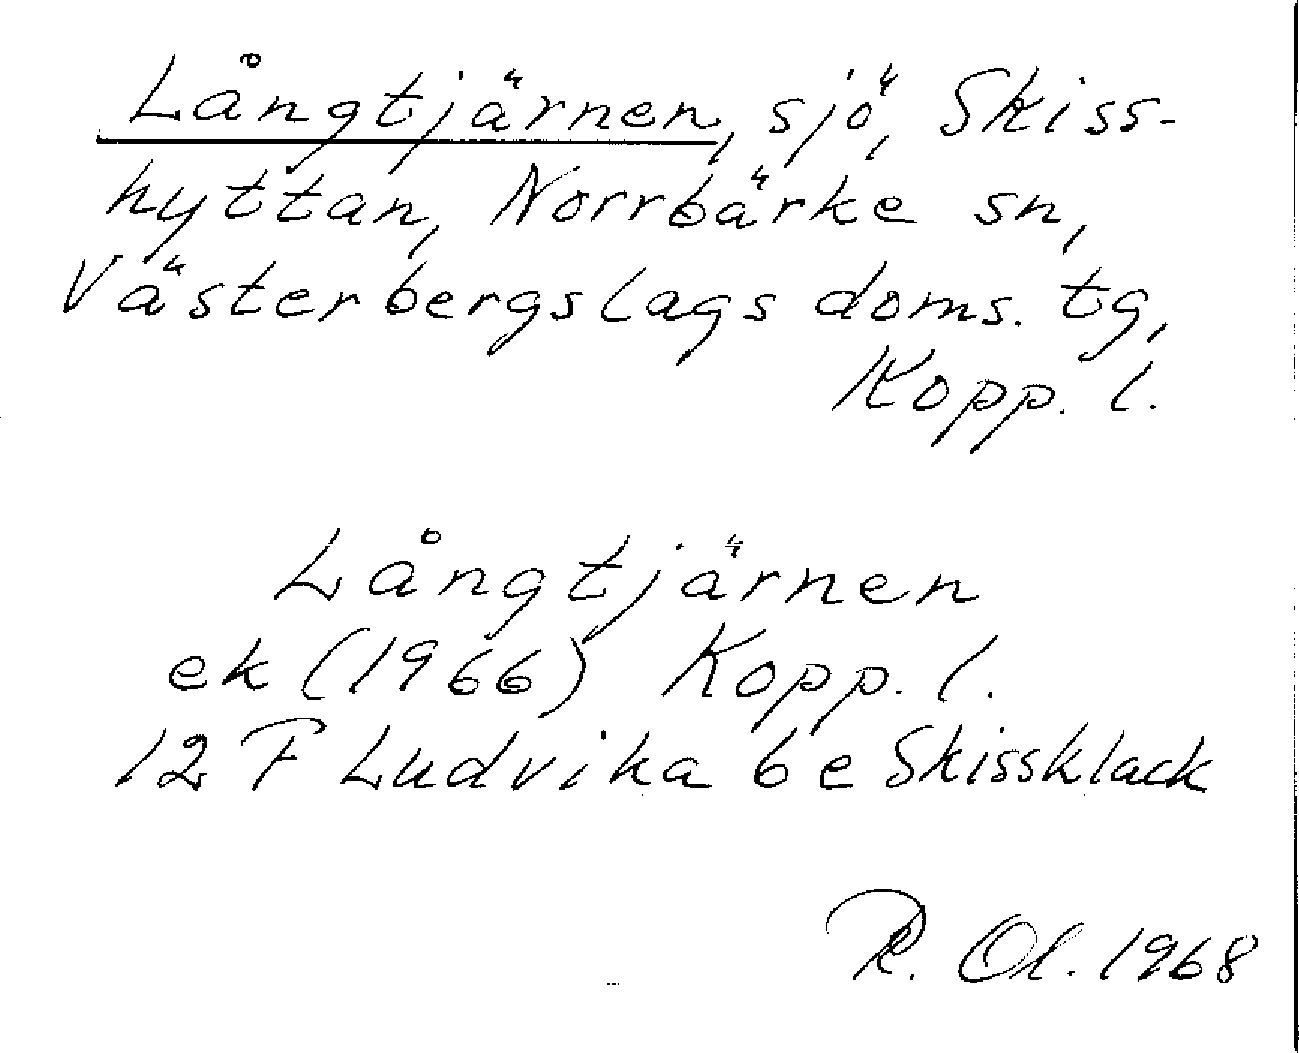 Långtjärnen, sjö, Skiss-
hyttan, Norrbärke sn,
Västerbergslags doms. tg,
Kopp. l.
Långtjärnen
ek (1966) Kopp. l.
12 F Ludvika 6 e Skissklack
R. Ol. 1968